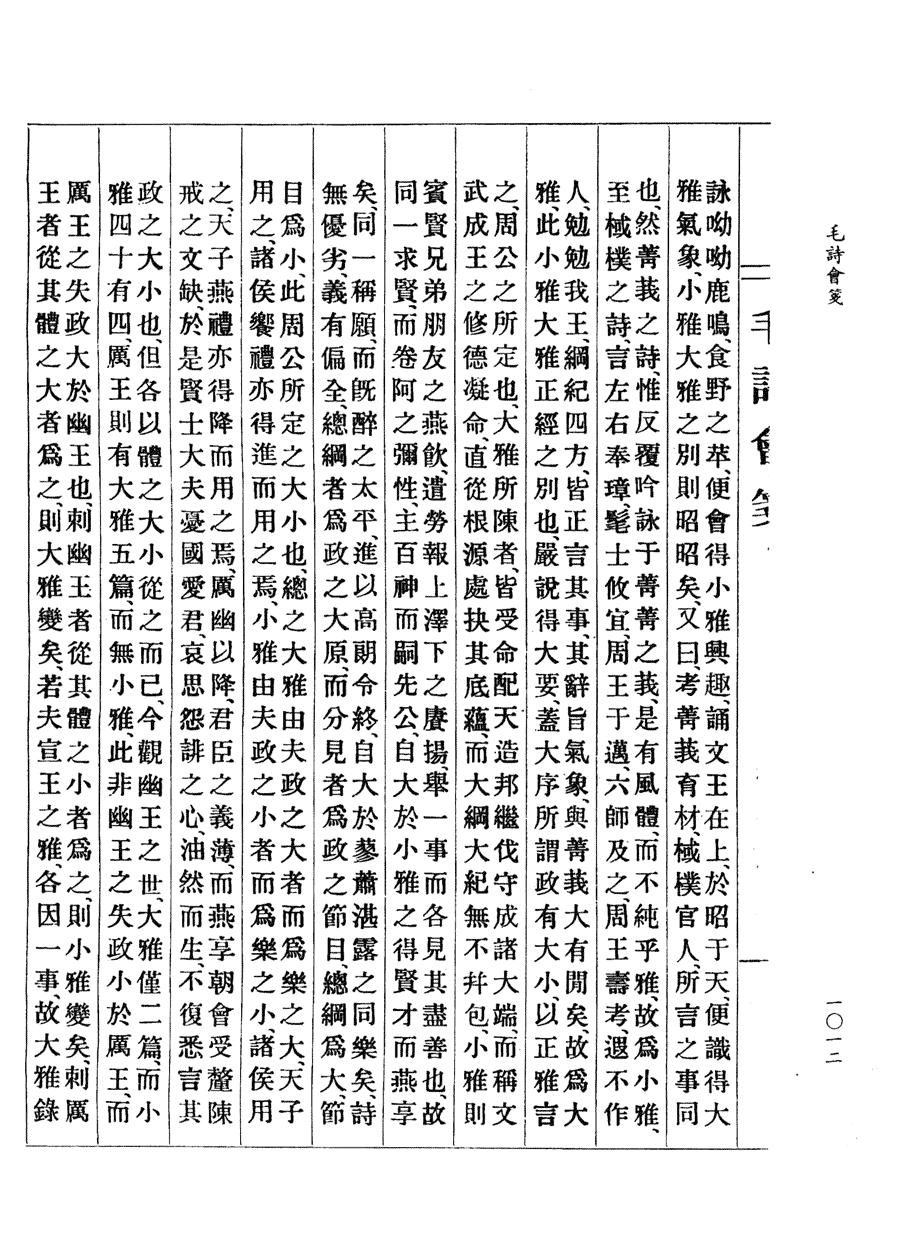 毛詩會箋
一〇一二
詠呦呦鹿鳴、食野之苹、便會得小雅興趣、誦文王在上、於昭于天、便識得大
雅氣象、小雅大雅之別則昭昭矣、又曰、考菁莪育材、棫樸官人、所言之事同
也、然菁莪之詩、惟反覆吟詠于菁菁之莪、是有風體、而不純乎雅、故爲小雅、
至棫樸之詩、言左右奉璋、髦士攸宜、周王于邁、六師及之、周王壽考、遐不作
人、勉勉我王、綱紀四方、皆正言其事、其辭旨氣象、與菁莪大有閒矣、故爲大
雅、此小雅大雅正經之別也、嚴說得大要、蓋大序所謂政有大小、以正雅言
之、周公之所定也、大雅所陳者、皆受命配天造邦繼伐守成諸大端、而稱文
武成王之修德凝命、直從根源處抉其底蘊、而大綱大紀無不幷包、小雅則
賓賢兄弟朋友之燕飮、遣勞報上澤下之賡揚、舉一事而各見其盡善也、故
同一求賢、而卷阿之彌性、主百神而嗣先公、自大於小雅之得賢才而燕享
矣、同一稱願、而旣醉之太平、進以高朗令終、自大於蓼蕭湛露之同樂矣、詩
無優劣、義有偏全、總綱者爲政之大原、而分見者爲政之節目、總綱爲大、節
目爲小、此周公所定之大小也、總之大雅由夫政之大者而爲樂之大、天子
用之、諸侯饗禮亦得進而用之焉、小雅由夫政之小者而爲樂之小、諸侯用
之、天子燕禮亦得降而用之焉、厲幽以降、君臣之義薄、而燕享朝會受釐陳
戒之文缺、於是賢士大夫憂國愛君、哀思怨誹之心、油然而生、不復悉言其
政之大小也、但各以體之大小從之而已、今觀幽王之世、大雅僅二篇、而小
雅四十有四、厲王則有大雅五篇、而無小雅、此非幽王之失政小於厲王、而
厲王之失政大於幽王也、刺幽王者從其體之小者爲之、則小雅變矣、刺厲
王者從其體之大者爲之、則大雅變矣、若夫宣王之雅、各因一事、故大雅錄